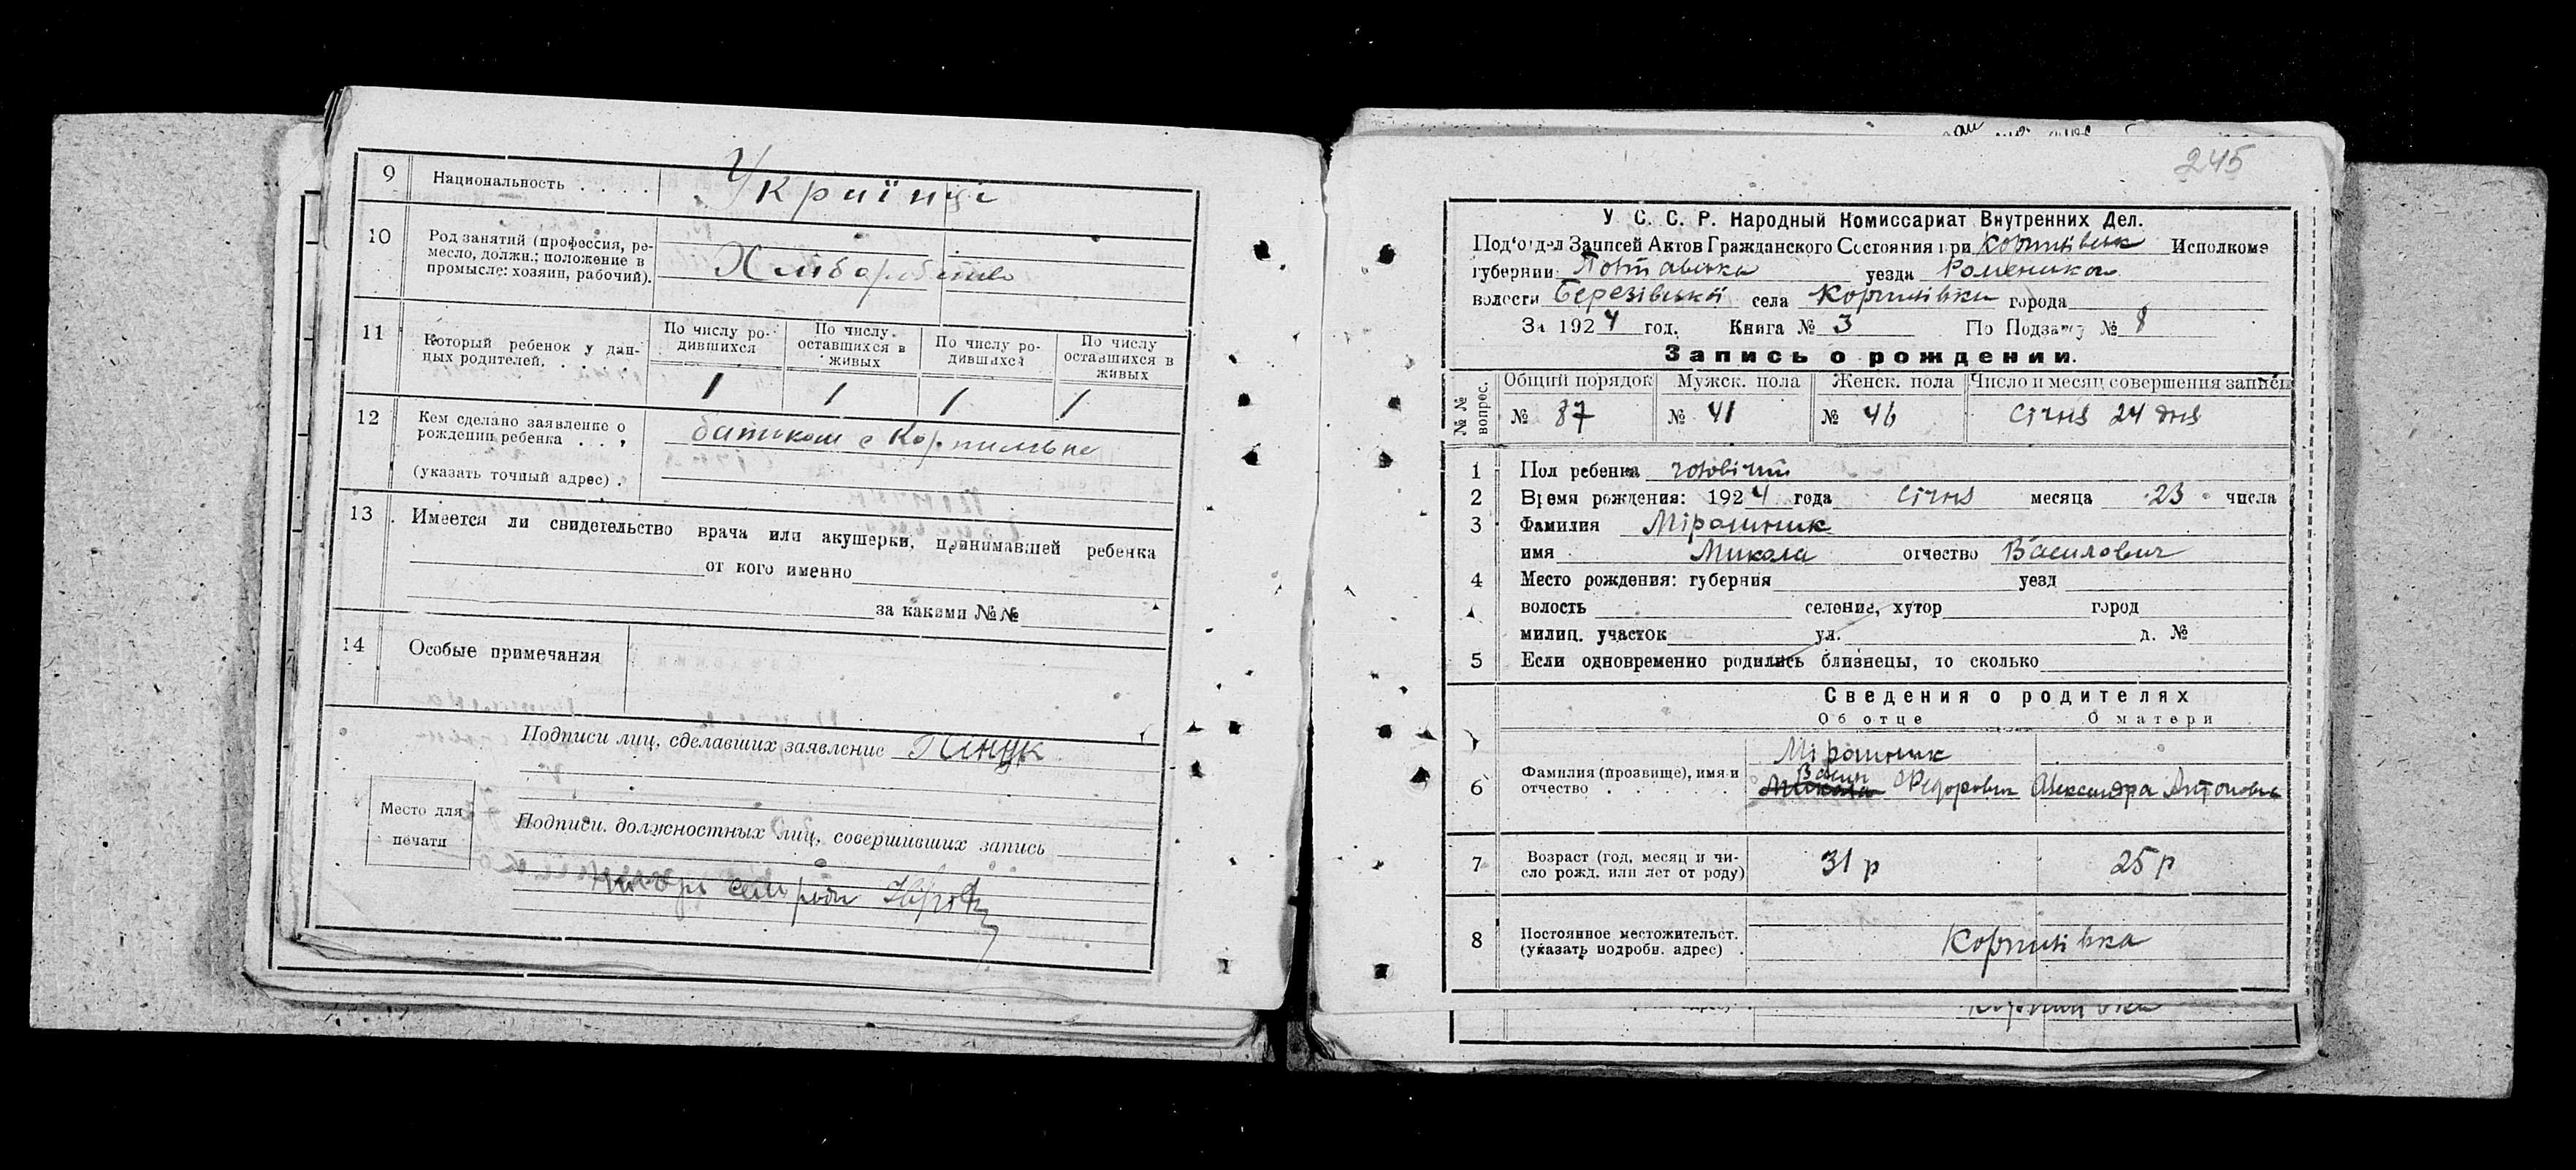 9 Национальность . . . . Українці
10 Род занятий (профессия, ре-
месло, должн.; положение в
промысле: хозяин, рабочий). Хліборобство
11 Который ребенок у дан-
ных родителей. . . . .
По числу ро-
дившихся
По числу
оставшихся в
живых
По числу ро-
дившихся
По числу
оставшихся в
живых
1 1 1 1
12 Кем сделано заявление о
рождении ребенка . . . батьком с
(указать точный адрес) .
13 Имеется ли свидетельство врача или акушерки, принимавшей ребенка
от кого именно
за какими №№
14 Особые примечания
Подписи лиц, сделавших заявление
Место для
печати
Подписи должностных лиц, совершивших запись
245
У. С. С. Р. Народный Комиссариат Внутренних Дел.
Под'отдел Записей Актов Гражданского Состояния при Исполкоме
губернии Полтавська уезда Роменском
волости Березівської села Коржівки города
За 1924 год. Книга № 3 По Подзагу № 8
Запись о рождении.
№ № вопрос.
Общий порядок Мужск. пола Женск. пола Число и месяц совершения записи
№ 87 № 41 № 46 Січня 24 дня
1 Пол ребенка чоловічий
2 Время рождения: 1924 года Січня месяца 23 числа
3 Фамилия Мірошник
имя Микола отчество Василович
4 Место рождения: губерния уезд
волость селение, хутор город
милиц. участок ул. д. №
5 Если одновременно родились близнецы, то сколько
Сведения о родителях
Об отце О матери
Мірошник
6 Фамилия (прозвище), имя и
отчество . . . . . . Микола Васил Федорович Александра Антоновна
7 Возраст (год, месяц и чи-
сло рожд. или лет от роду) 31 р 25 р
8 Постоянное местожительст.
(указать подробн. адрес) .